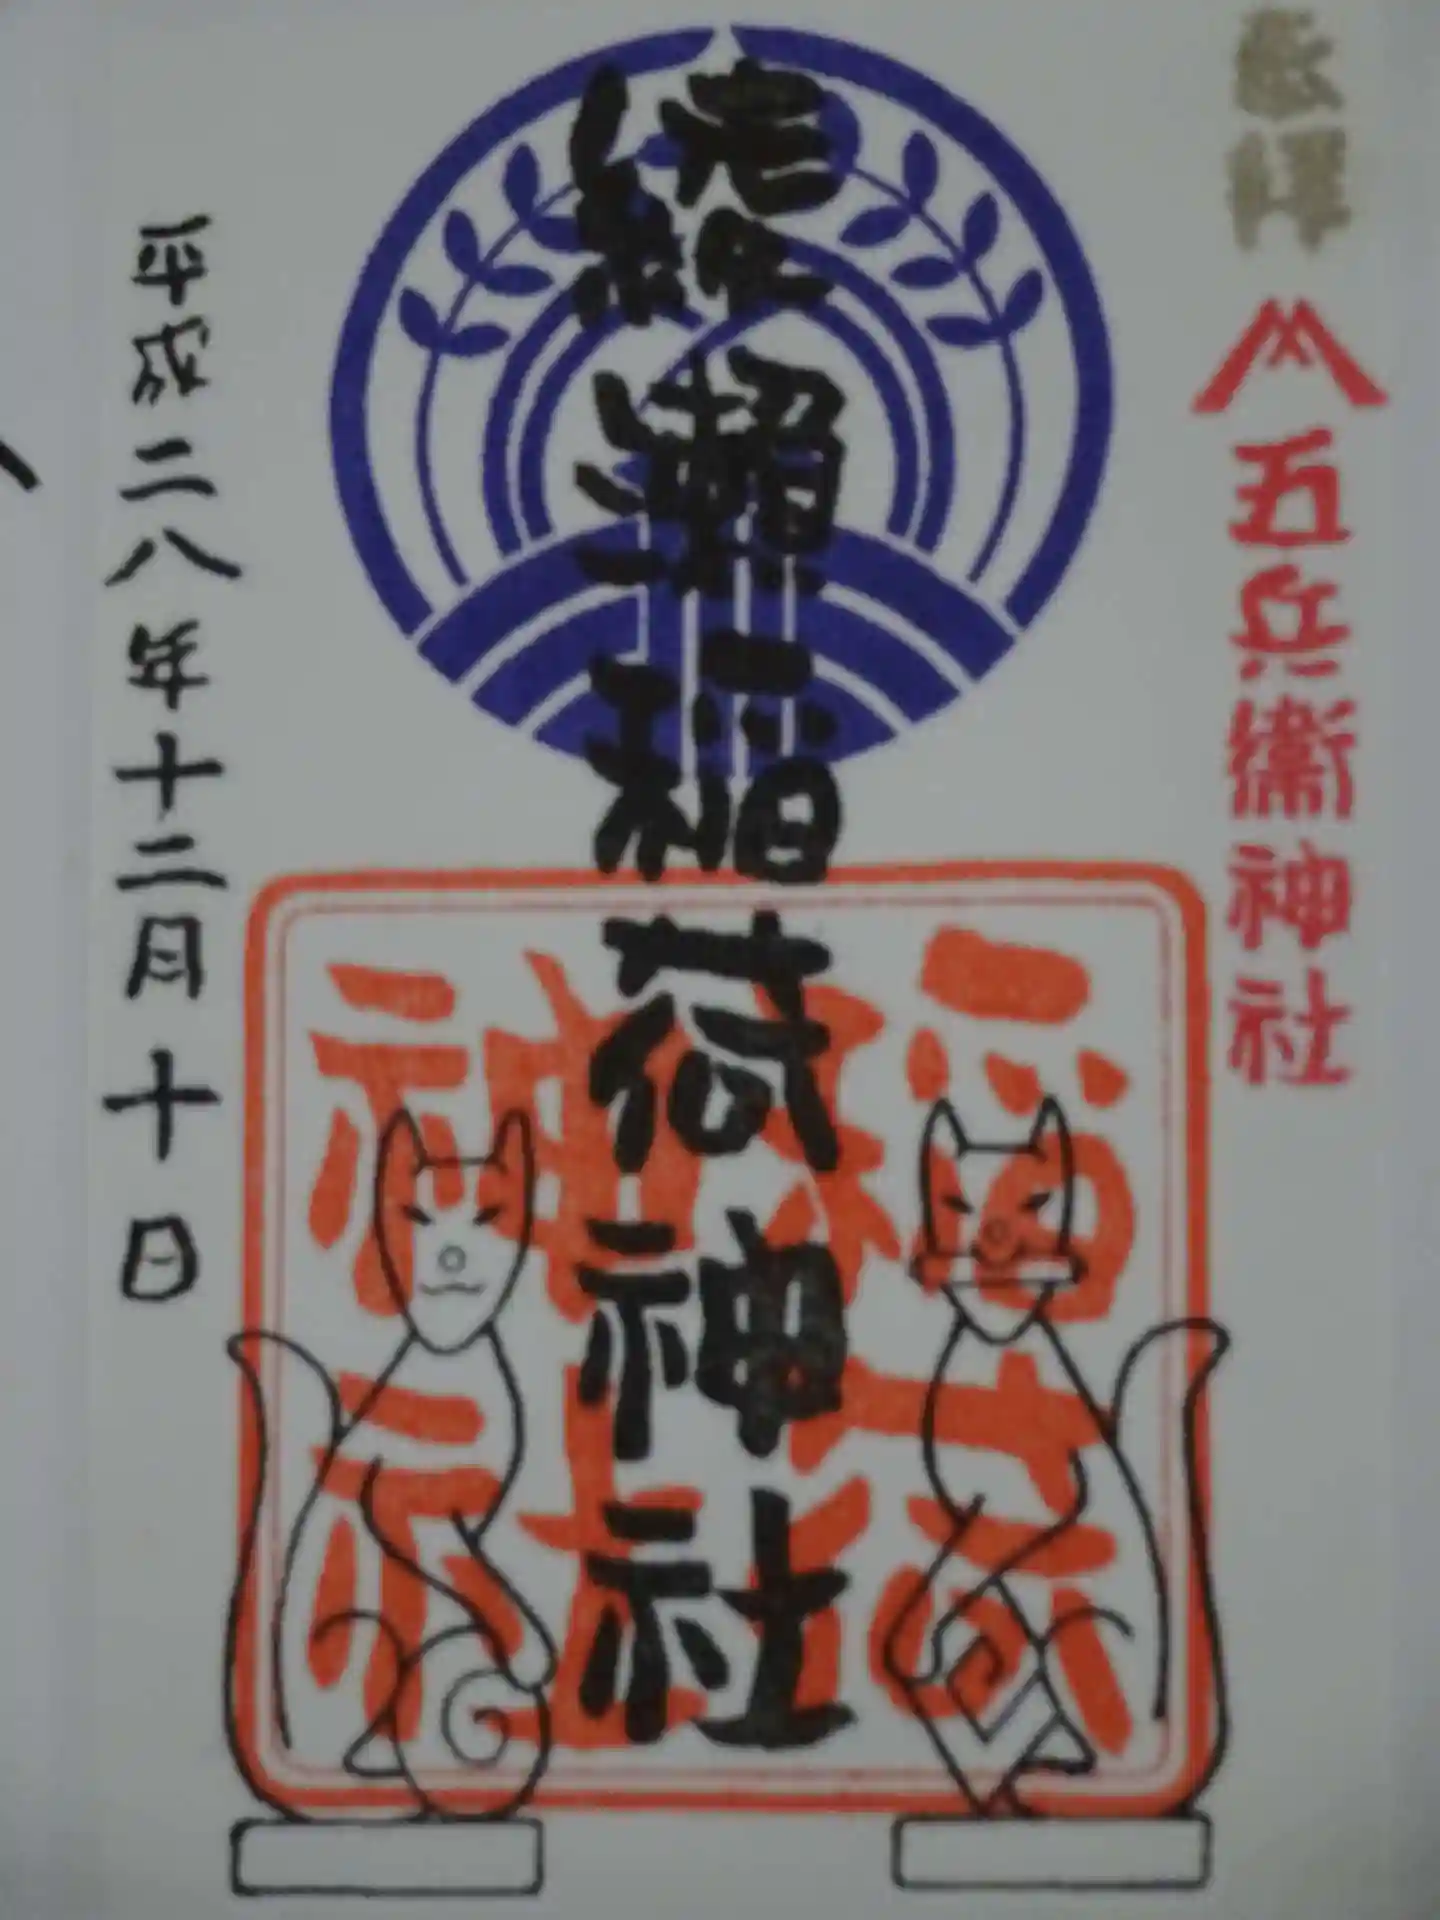 敬拝
五兵衛神社
綾瀬稲荷神社
稲荷
神社
平成二八年十二月十日